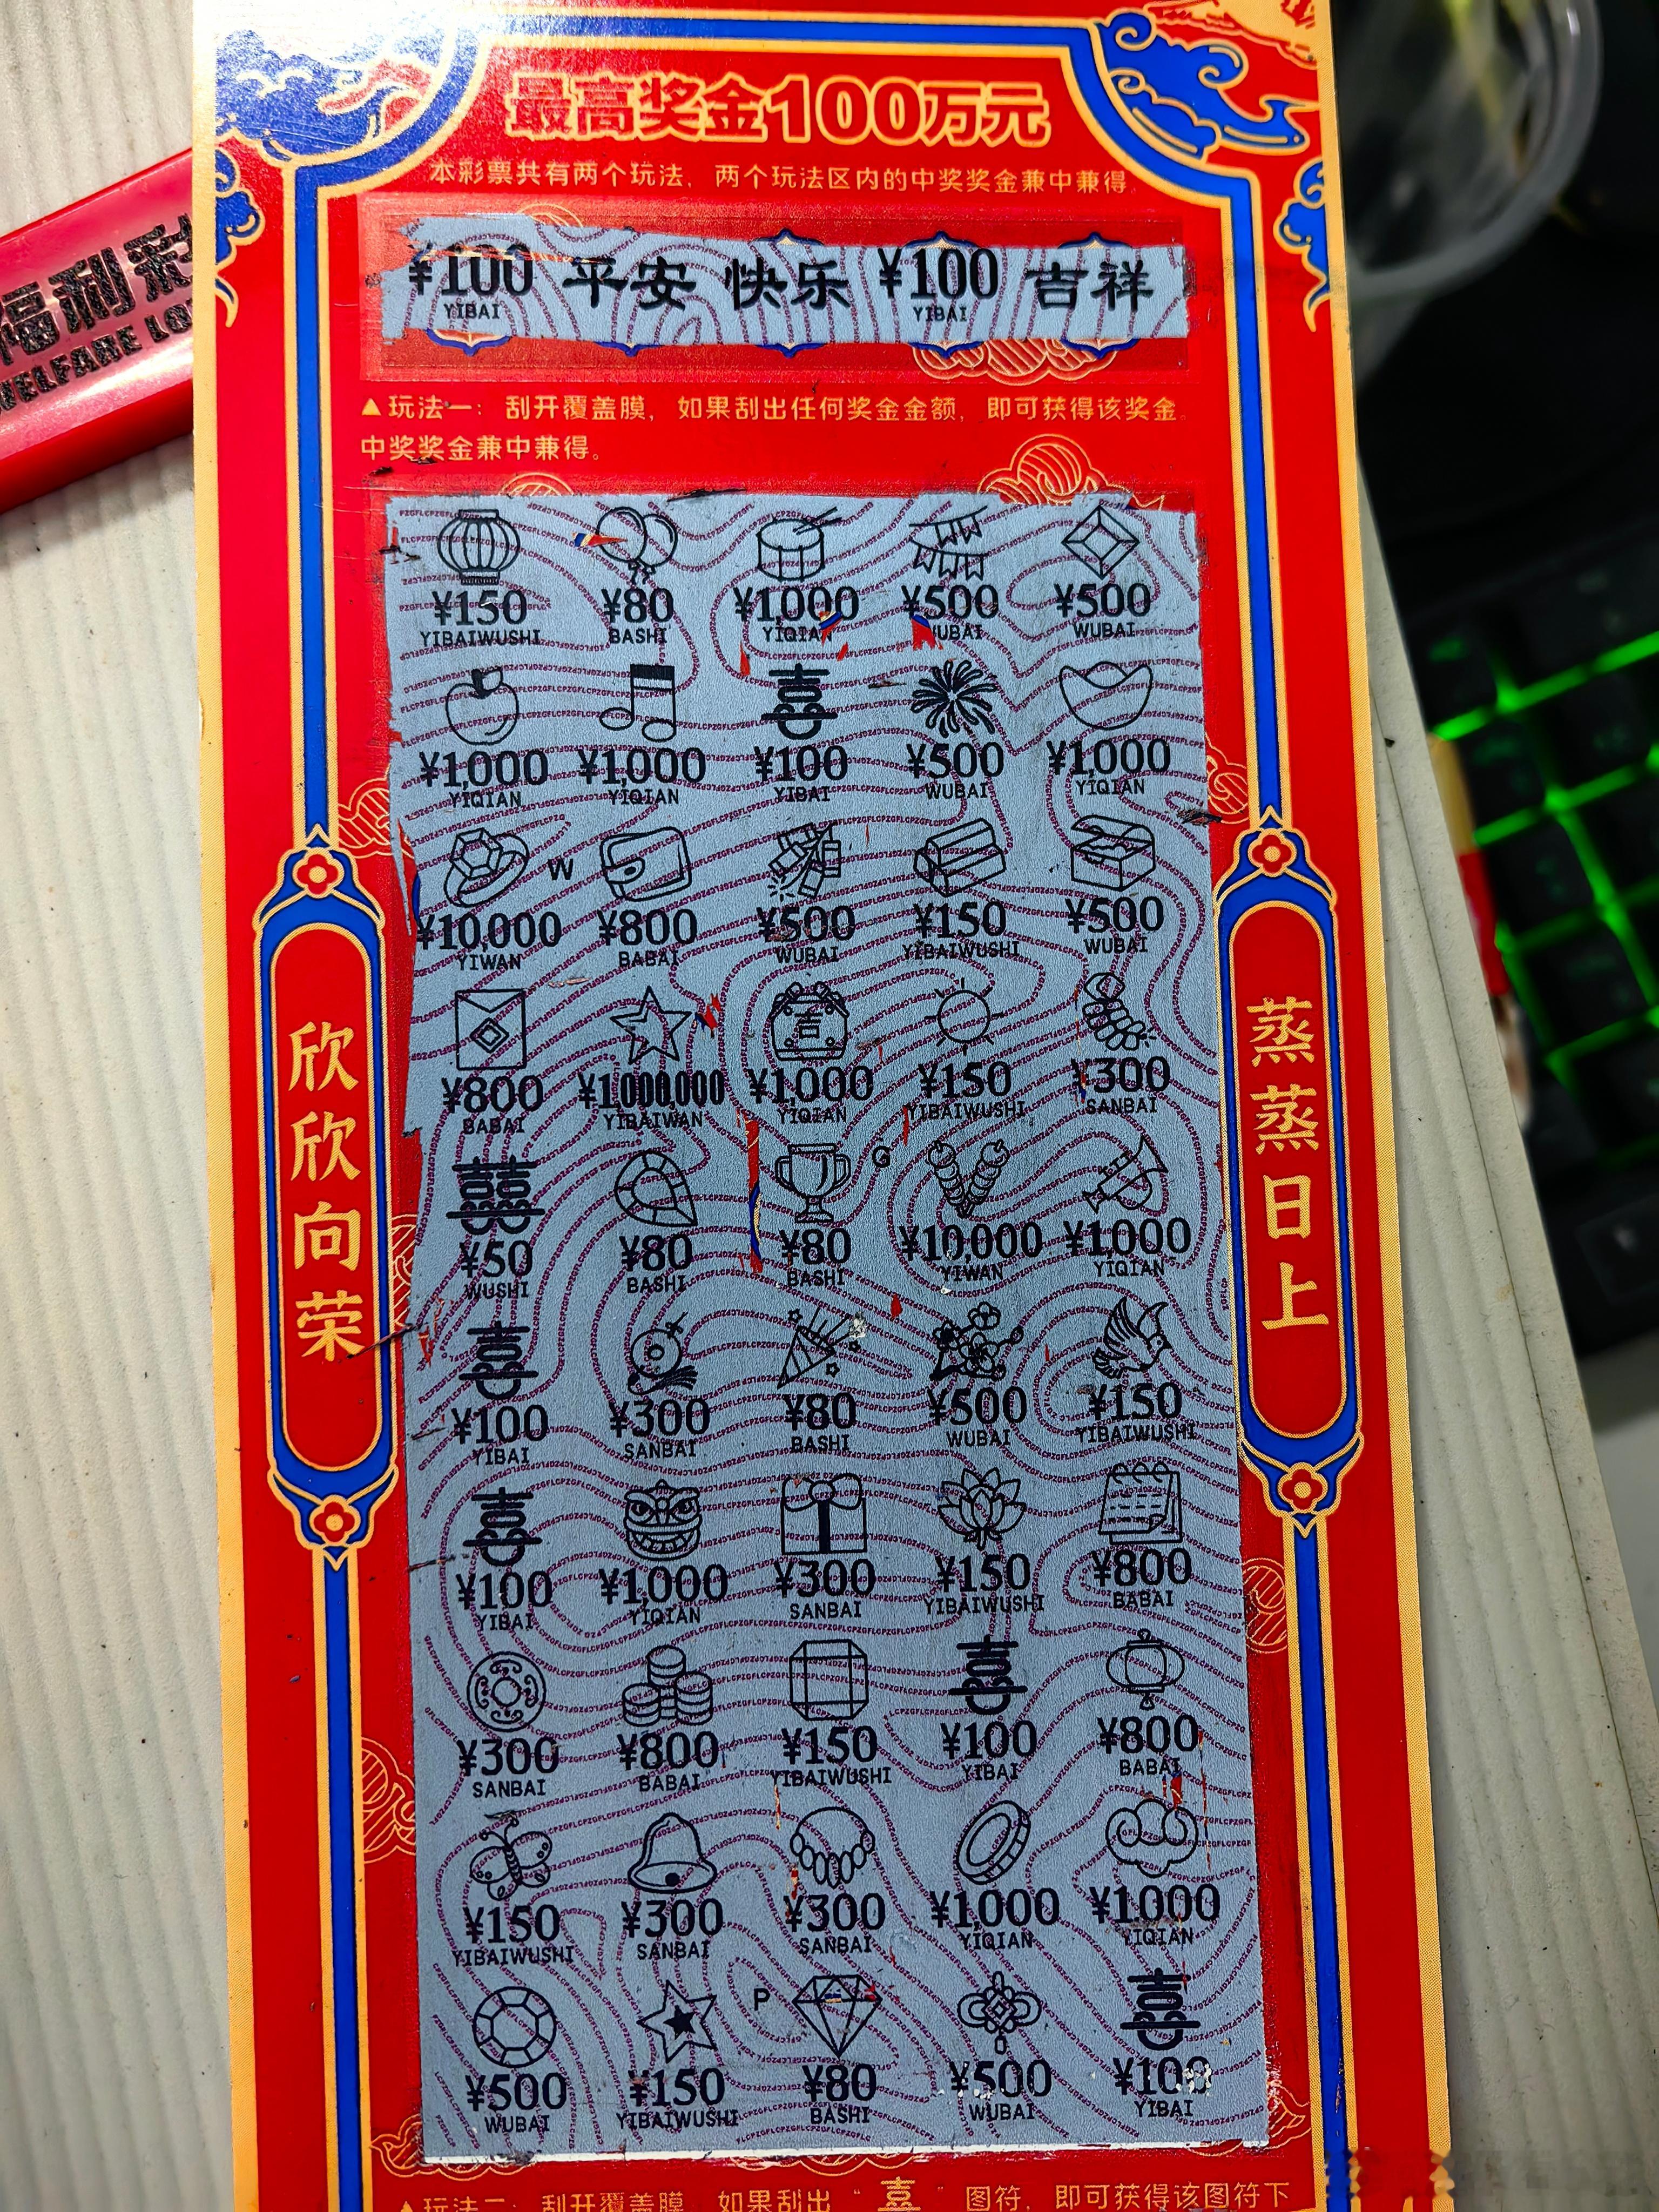 最高奖金100万元
本彩票共有两个玩法，两个玩法区内的中奖奖金兼中兼得。
¥100 平安 快乐 ¥100 吉祥
YIBAI YIBAI
▲玩法一：刮开覆盖膜，如果刮出任何奖金金额，即可获得该奖金。
中奖奖金兼中兼得。
福利彩
WELFARE LO
¥150 ¥80 ¥1,000 ¥500 ¥500
YIBAIWUSHI BASHI YIQIAN WUBAI WUBAI
喜
¥1,000 ¥1,000 ¥100 ¥500 ¥1,000
YIQIAN YIQIAN YIBAI WUBAI YIQIAN
W
¥10,000 ¥800 ¥500 ¥150 ¥500
YIWAN BABAI WUBAI YIBAIWUSHI WUBAI
吉
¥800 ¥1,000,000 ¥1,000 ¥150 ¥300
BABAI YIBAIWAN YIQIAN YIBAIWUSHI SANBAI
囍 G
¥50 ¥80 ¥80 ¥10,000 ¥1,000
WUSHI BASHI BASHI YIWAN YIQIAN
喜
¥100 ¥300 ¥80 ¥500 ¥150
YIBAI SANBAI BASHI WUBAI YIBAIWUSHI
喜
¥100 ¥1,000 ¥300 ¥150 ¥800
YIBAI YIQIAN SANBAI YIBAIWUSHI BABAI
喜
¥300 ¥800 ¥150 ¥100 ¥800
SANBAI BABAI YIBAIWUSHI YIBAI BABAI
¥150 ¥300 ¥300 ¥1,000 ¥1,000
YIBAIWUSHI SANBAI SANBAI YIQIAN YIQIAN
P 喜
¥500 ¥150 ¥80 ¥500 ¥100
WUBAI YIBAIWUSHI BASHI WUBAI YIBAI
欣欣向荣
蒸蒸日上
▲玩法二：刮开覆盖膜，如果刮出“喜”图符，即可获得该图符下